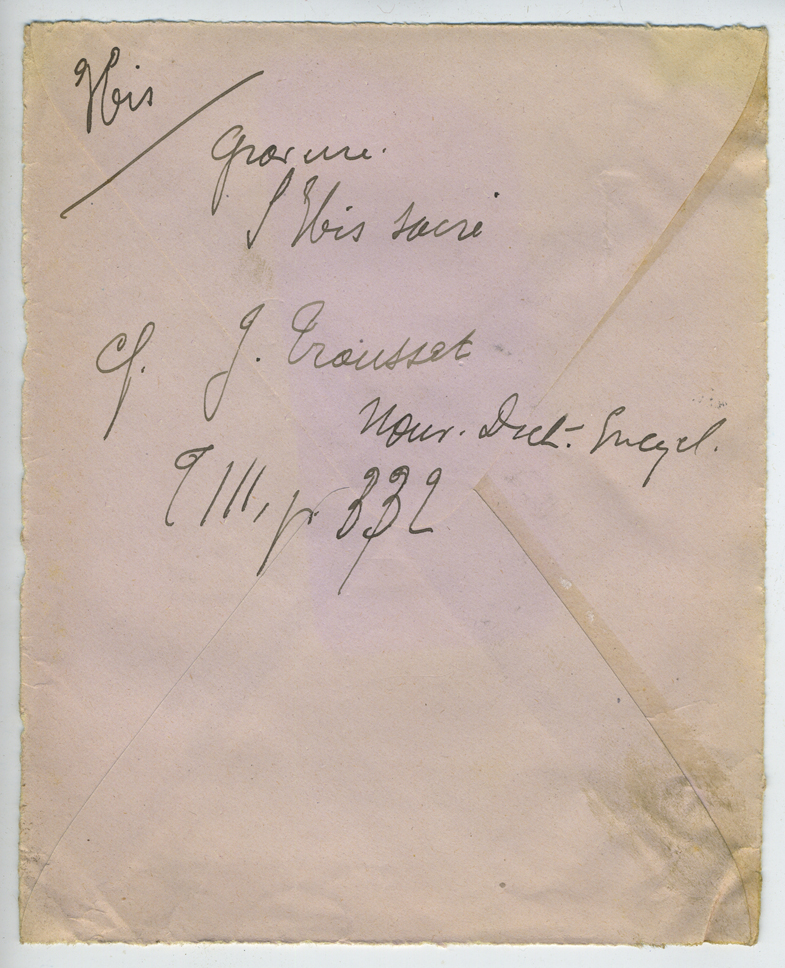 Ibis
Gravure.
l'Ibis sacré
cf. J. Trousset
Nouv. Dict. Encycl.
T III, p. 332